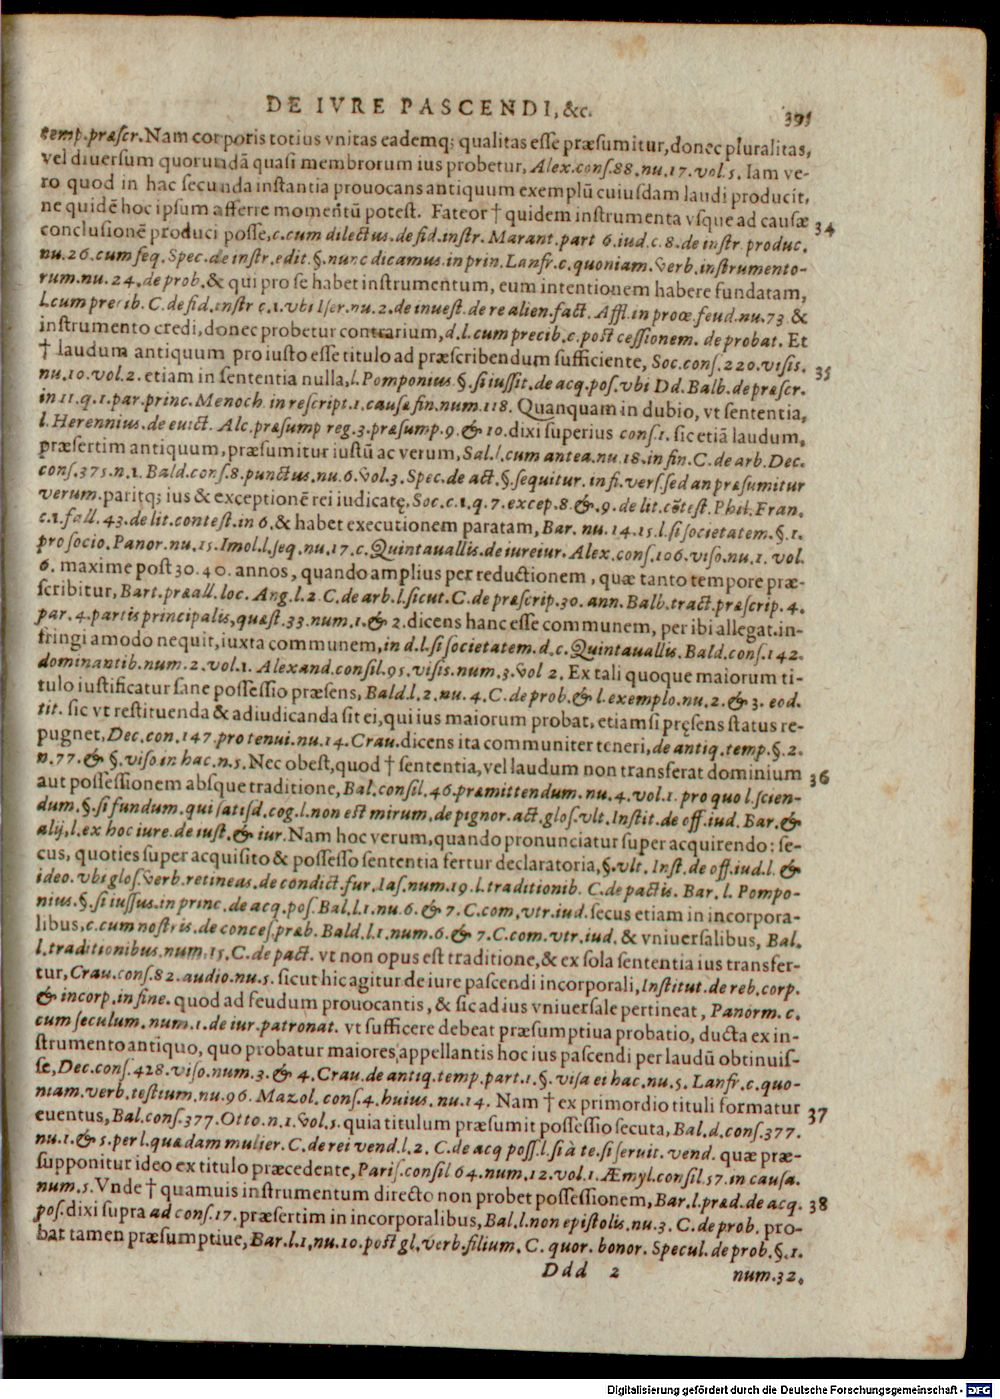 DE IVRE PASCENDI, &c. 391
temp. præscr. Nam corporis totius vnitas eademq; qualitas esse præsumitur, donec pluralitas,
vel diuersum quorundā quasi membrorum ius probetur, Alex. cons. 88. nu. 17. vol. 5. Iam ve-
ro quod in hac secunda instantia prouocans antiquum exemplū cuiusdam laudi producit,
ne quidē hoc ipsum afferre momentū potest. Fateor † quidem instrumenta vsque ad causæ 34
conclusionē produci posse, c. cum dilectus. de fid. instr. Marant. part 6. iud. c. 8. de instr. produc.
nu. 26. cum seq. Spec. de instr. edit. §. nunc dicamus. in prin. Lanfr. c. quoniam. verb. instrumento-
rum. nu. 24. de prob. & qui pro se habet instrumentum, eum intentionem habere fundatam,
l. cum precib. C. de fid. instr c. 1. vbi Iser. nu. 2. de inuest. de re alien. fact. Affl. in proœ. feud. nu. 73 &
instrumento credi, donec probetur contrarium, d. l. cum precib. c. post cessionem. de probat. Et
† laudum antiquum pro iusto esse titulo ad præscribendum sufficiente, Soc. cons. 220. visis. 35
nu. 10. vol. 2. etiam in sententia nulla, l. Pomponius §. si iussit. de acq. pos. vbi Dd. Balb. de præscr.
in 11. q. 1. par. princ. Menoch in rescript. 1. causa fin. num. 118. Quanquam in dubio, vt sententia,
l. Herennius. de euict. Alc. præsump reg. 3. præsump. 9. & 10. dixi superius cons. 1. sic etiā laudum,
præsertim antiquum, præsumitur iustū ac verum, Sal. l. cum antea. nu. 18. in fin. C. de arb. Dec.
cons. 375. n. 1. Bald. cons. 8. punctus. nu. 6. vol. 3. Spec. de act. §. sequitur. in fi. vers. sed an præsumitur
verum. paritq; ius & exceptionē rei iudicatę, Soc. c. 1. q. 7. excep. 8. &. 9. de lit. cōtest. Phil. Fran.
c. 1. fall. 43. de lit. contest. in 6. & habet executionem paratam, Bar. nu. 14. 15. l. si societatem. §. 1.
pro socio. Panor. nu. 15. Imol. l. seq. nu. 17. c. Quintauallis. de iureiur. Alex. cons. 106. viso. nu. 1. vol.
6. maxime post 30. 40. annos, quando amplius per reductionem, quæ tanto tempore præ-
scribitur, Bart. præall. loc. Ang. l. 2. C. de arb. l. sicut. C. de præscrip. 30. ann. Balb. tract. præscrip. 4.
par. 4. partis principalis, quæst. 33. num. 1. & 2. dicens hanc esse communem, per ibi allegat. in-
fringi amodo nequit, iuxta communem, in d. l. si societatem. d. c. Quintauallis. Bald. cons. 142.
dominantib. num. 2. vol. 1. Alexand. consil. 95. visis. num. 3. vol 2. Ex tali quoque maiorum ti-
tulo iustificatur sane possessio præsens, Bald. l. 2. nu. 4. C. de prob. & l. exemplo. nu. 2. & 3. eod.
tit. sic vt restituenda & adiudicanda sit ei, qui ius maiorum probat, etiamsi pręsens status re-
pugnet, Dec. con. 147. pro tenui. nu. 14. Crau. dicens ita communiter teneri, de antiq. temp. §. 2.
n. 77. & §. viso in hac. n. 5. Nec obest, quod † sententia, vel laudum non transferat dominium 36
aut possessionem absque traditione, Bal. consil. 46. præmittendum. nu. 4. vol. 1. pro quo l. scien-
dum. §. si fundum. qui satisd. cog. l. non est mirum, de pignor. act. glos. vlt. Instit. de off. iud. Bar. &
alij, l. ex hoc iure. de iust. & iur. Nam hoc verum, quando pronunciatur super acquirendo: se-
cus, quoties super acquisito & possesso sententia fertur declaratoria, §. vlt. Inst. de off. iud. l. &
ideo. vbi glos. verb. retineas. de condict. fur. Ias. num. 19. l. traditionib. C. de pactis. Bar. l. Pompo-
nius. §. si iussus. in princ. de acq. pos. Bal. l. 1. nu. 6. & 7. C. com. vtr. iud. secus etiam in incorpora-
libus, c. cum nostris. de conces. præb. Bald. l. 1. num. 6. & 7. C. com. vtr. iud. & vniuersalibus, Bal.
l. traditionibus. num. 15. C. de pact. vt non opus est traditione, & ex sola sententia ius transfer-
tur, Crau. cons. 82. audio. nu. 5. sicut hic agitur de iure pascendi incorporali, Institut. de reb. corp.
& incorp. in fine. quod ad feudum prouocantis, & sic ad ius vniuersale pertineat, Panorm. c.
cum seculum. num. 1. de iur. patronat. vt sufficere debeat præsumptiua probatio, ducta ex in-
strumento antiquo, quo probatur maiores appellantis hoc ius pascendi per laudū obtinuis-
se, Dec. cons. 428. viso. num. 3. & 4. Crau. de antiq. temp. part. 1. §. visa et hac. nu. 5. Lanfr. c. quo-
niam. verb. testium. nu. 96. Mazol. cons. 4. huius. nu. 14. Nam † ex primordio tituli formatur 37
euentus, Bal. cons. 377. Otto. n. 1. vol. 5. quia titulum præsumit possessio secuta, Bal. d. cons. 377.
nu. 1. & 5. per l. quædam mulier. C. de rei vend. l. 2. C. de acq poss. l. si à te. si seruit. vend. quæ præ-
supponitur ideo ex titulo præcedente, Paris. consil 64. num. 12. vol. 1. Æmyl. consil. 57. in causa.
num. 5. Vnde † quamuis instrumentum directo non probet possessionem, Bar. l. præd. de acq. 38
pos. dixi supra ad cons. 17. præsertim in incorporalibus, Bal. l. non epistolis. nu. 3. C. de prob. pro-
bat tamen præsumptiue, Bar. l. 1. nu. 10. post gl. verb. filium. C. quor. bonor. Specul. de prob. §. 1.
Ddd 2 num. 32.
Digitalisierung gefördert durch die Deutsche Forschungsgemeinschaft - DFG